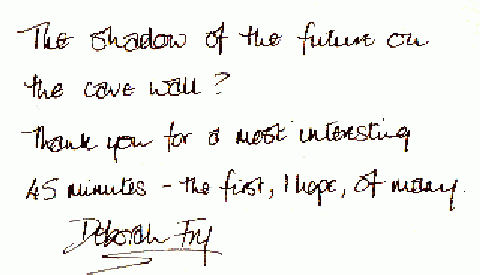 The shadow of the future on
the cave wall?
Thank you for a most interesting
45 minutes - the first, I hope, of many.
Deborah Fry